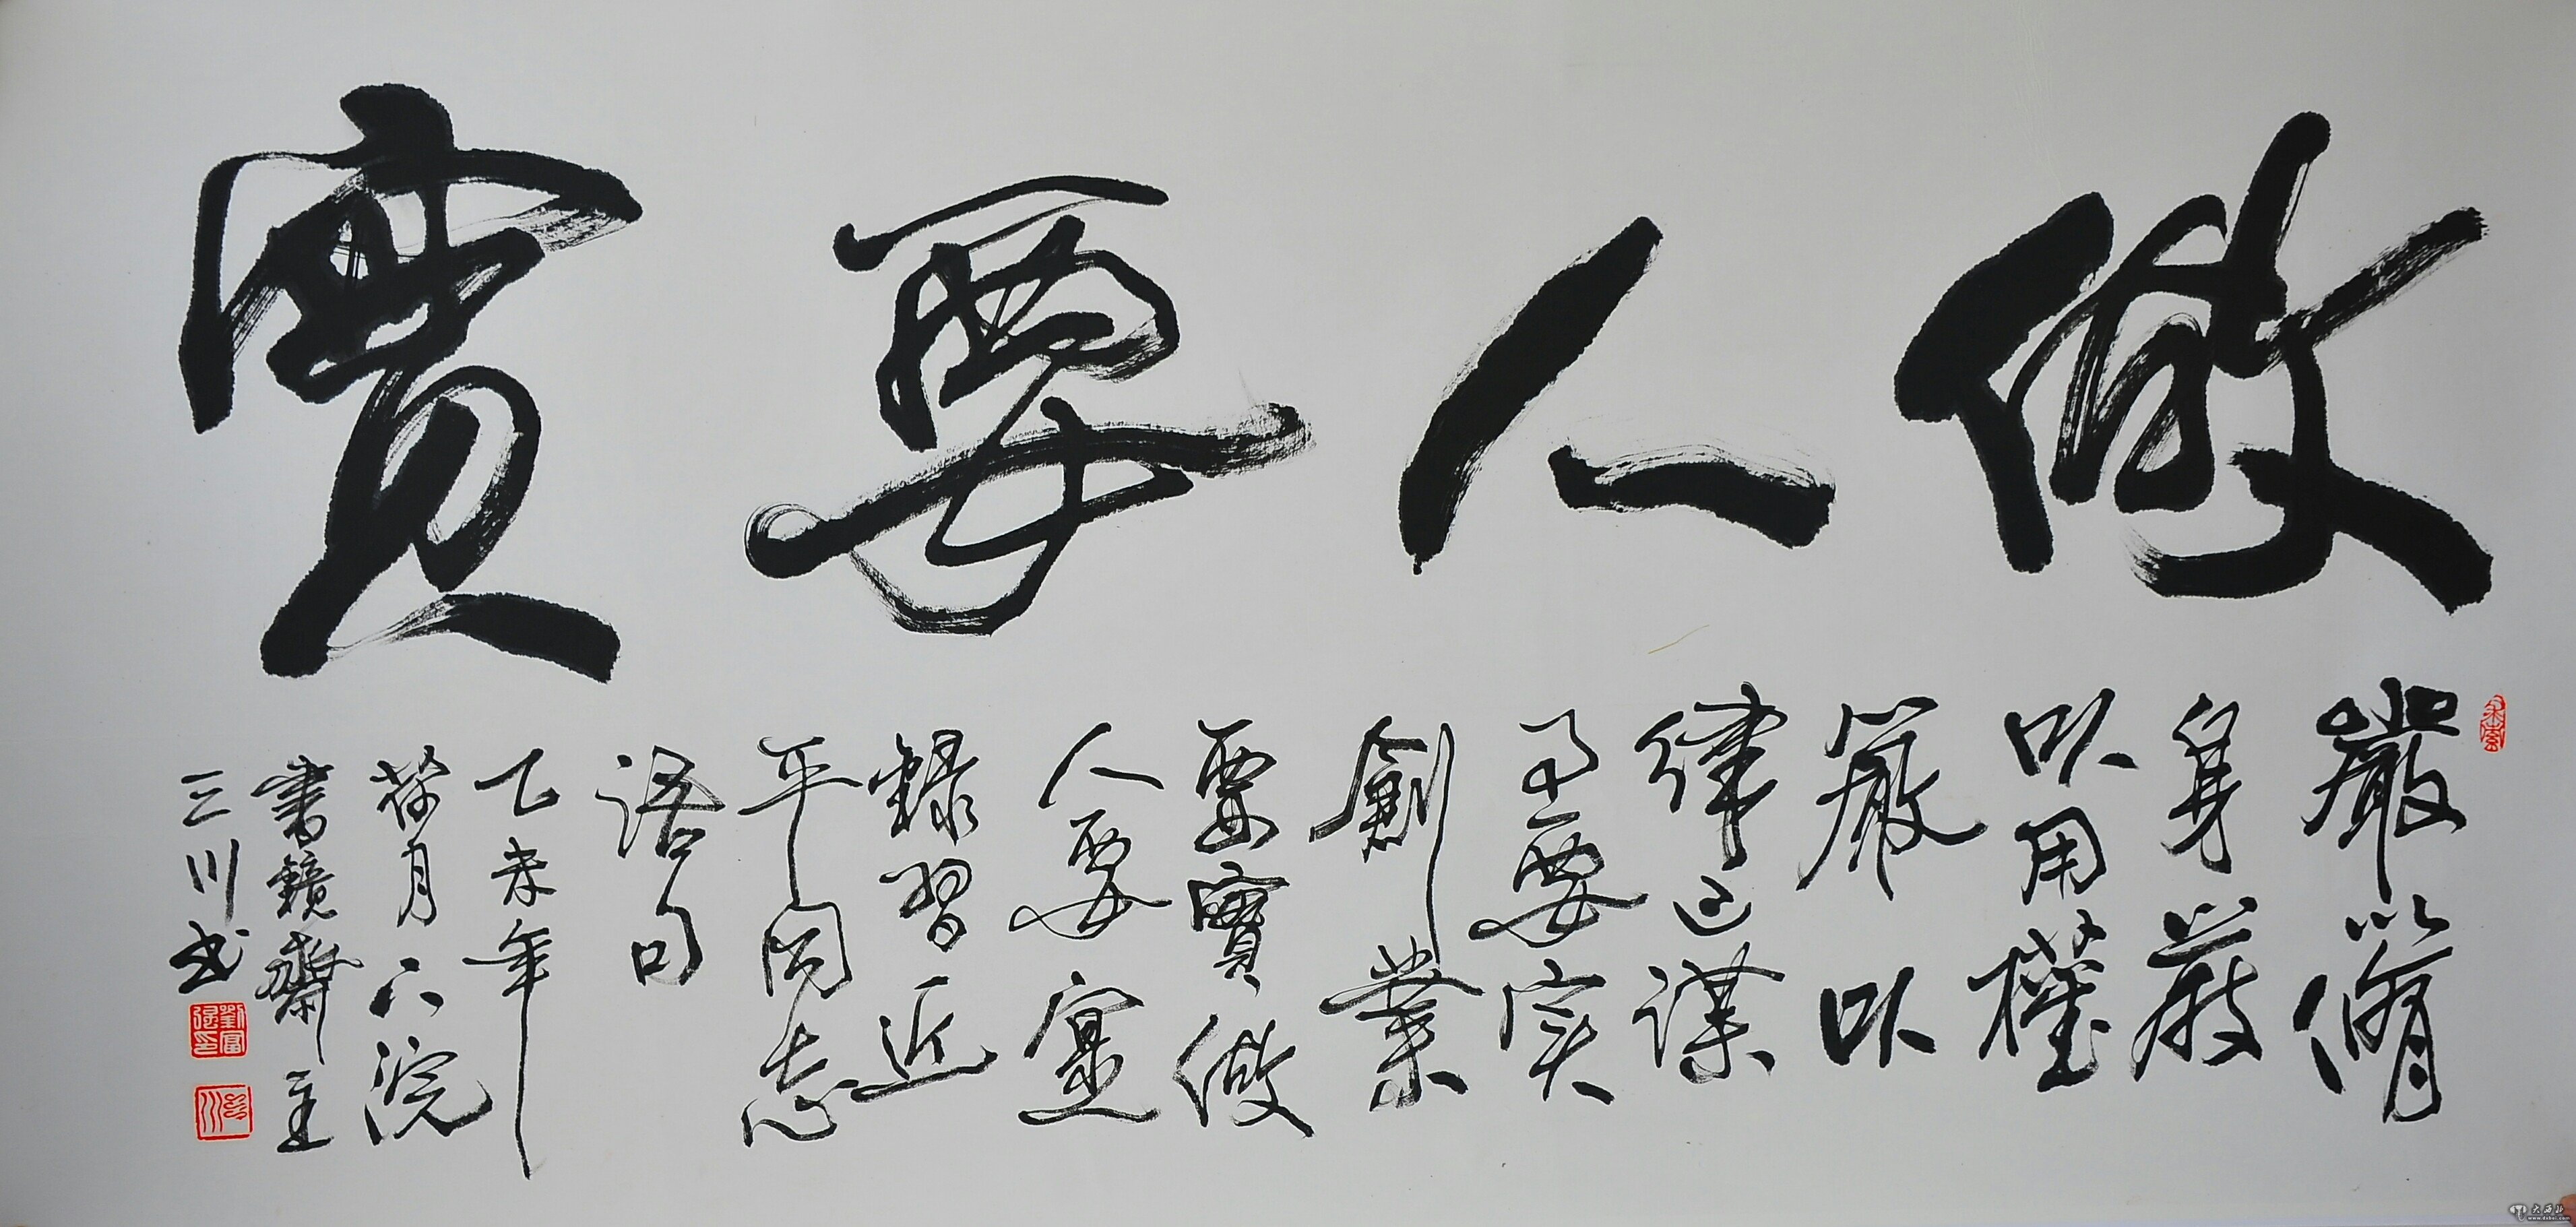 做人要實
嚴以脩
身嚴
以用權
嚴以
律己謀
事要实
創業
要實做
人要寔
錄習近
平同志
語句
乙未年
荷月下浣
書鏡齋主
三川书
劉富强印